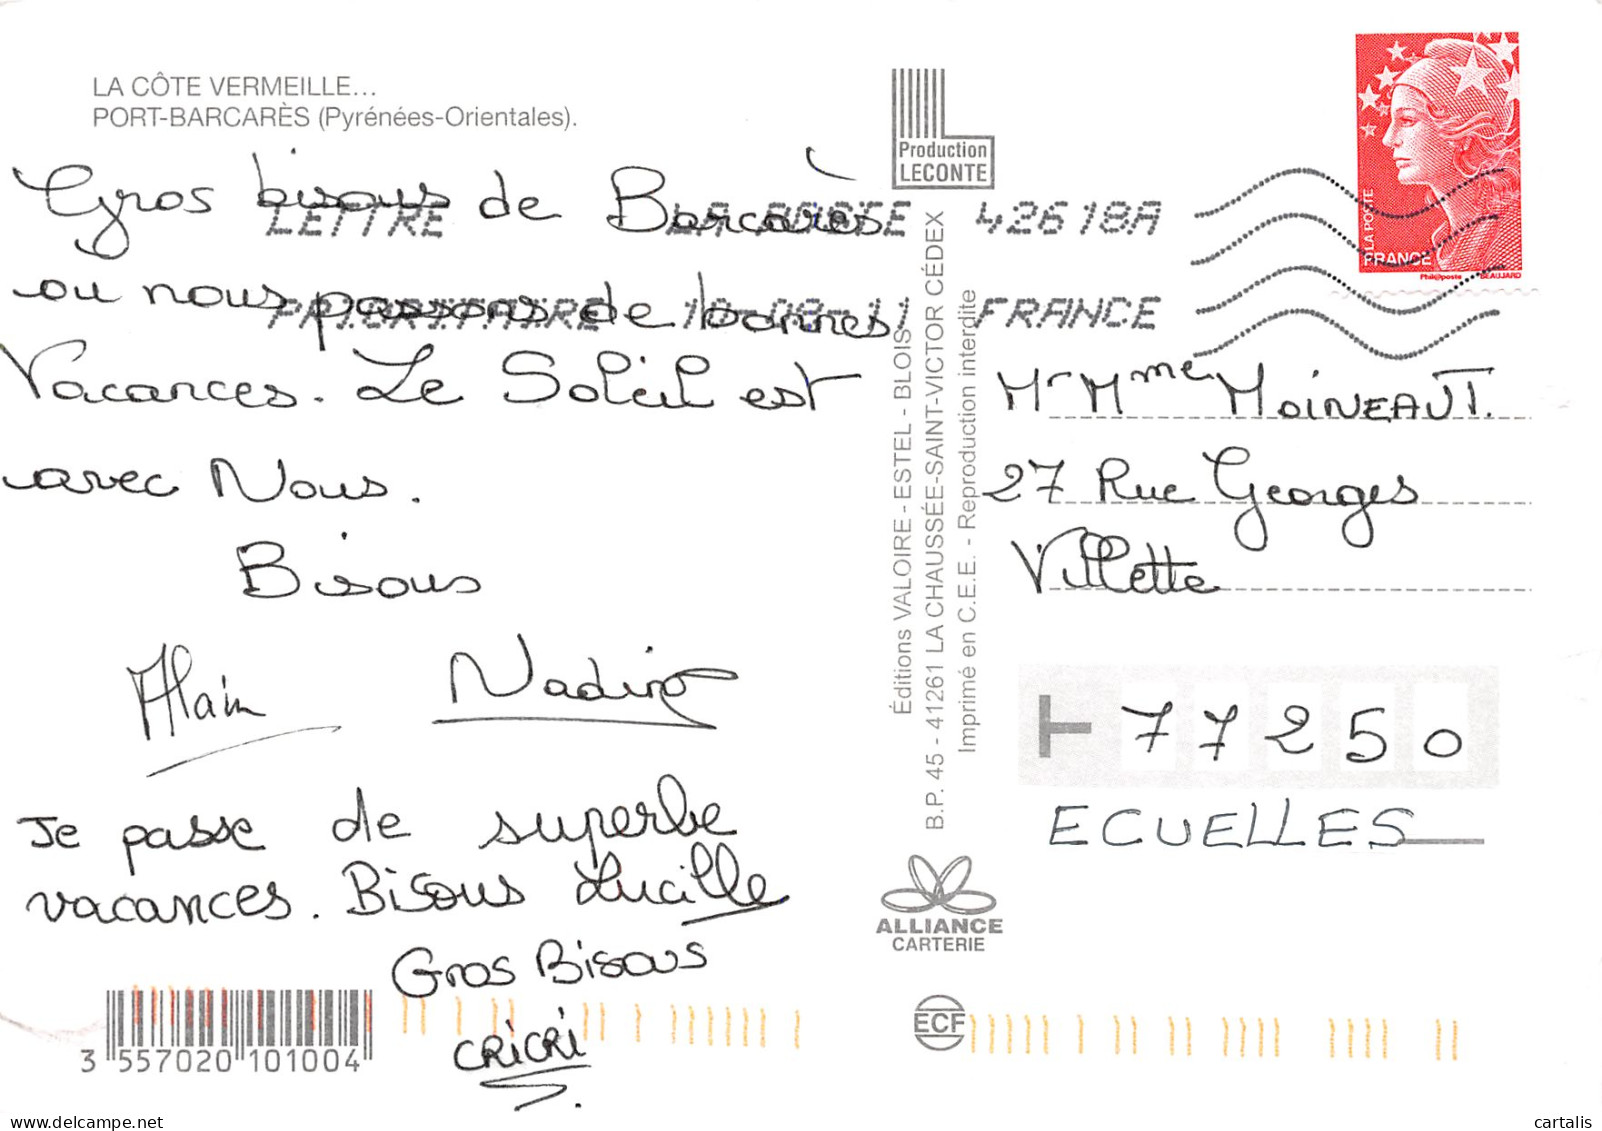 LA CÔTE VERMEILLE...
PORT-BARCARÈS (Pyrénées-Orientales).
Gros bisous de Barcarès
ou nous passons de bonnes
Vacances. Le Soleil est
avec Nous.
Bisous
Alain Nadine
Je passe de superbe
vacances. Bisous Lucille
Gros Bisous
CRICRI
3 557020 101004
Production
LECONTE
Éditions VALOIRE-ESTEL - BLOIS
B.P. 45 - 41261 LA CHAUSSÉE-SAINT-VICTOR CÉDEX
Imprimé en C.E.E. - Reproduction interdite
ALLIANCE
CARTERIE
ECF
LETTRE LA POSTE 42618A
PRIORITAIRE FRANCE
LA POSTE
FRANCE
Phil@poste BEAUJARD
Mr Mme MOINEAUT.
27 Rue Georges
Villette
77250
ECUELLES
cartalis